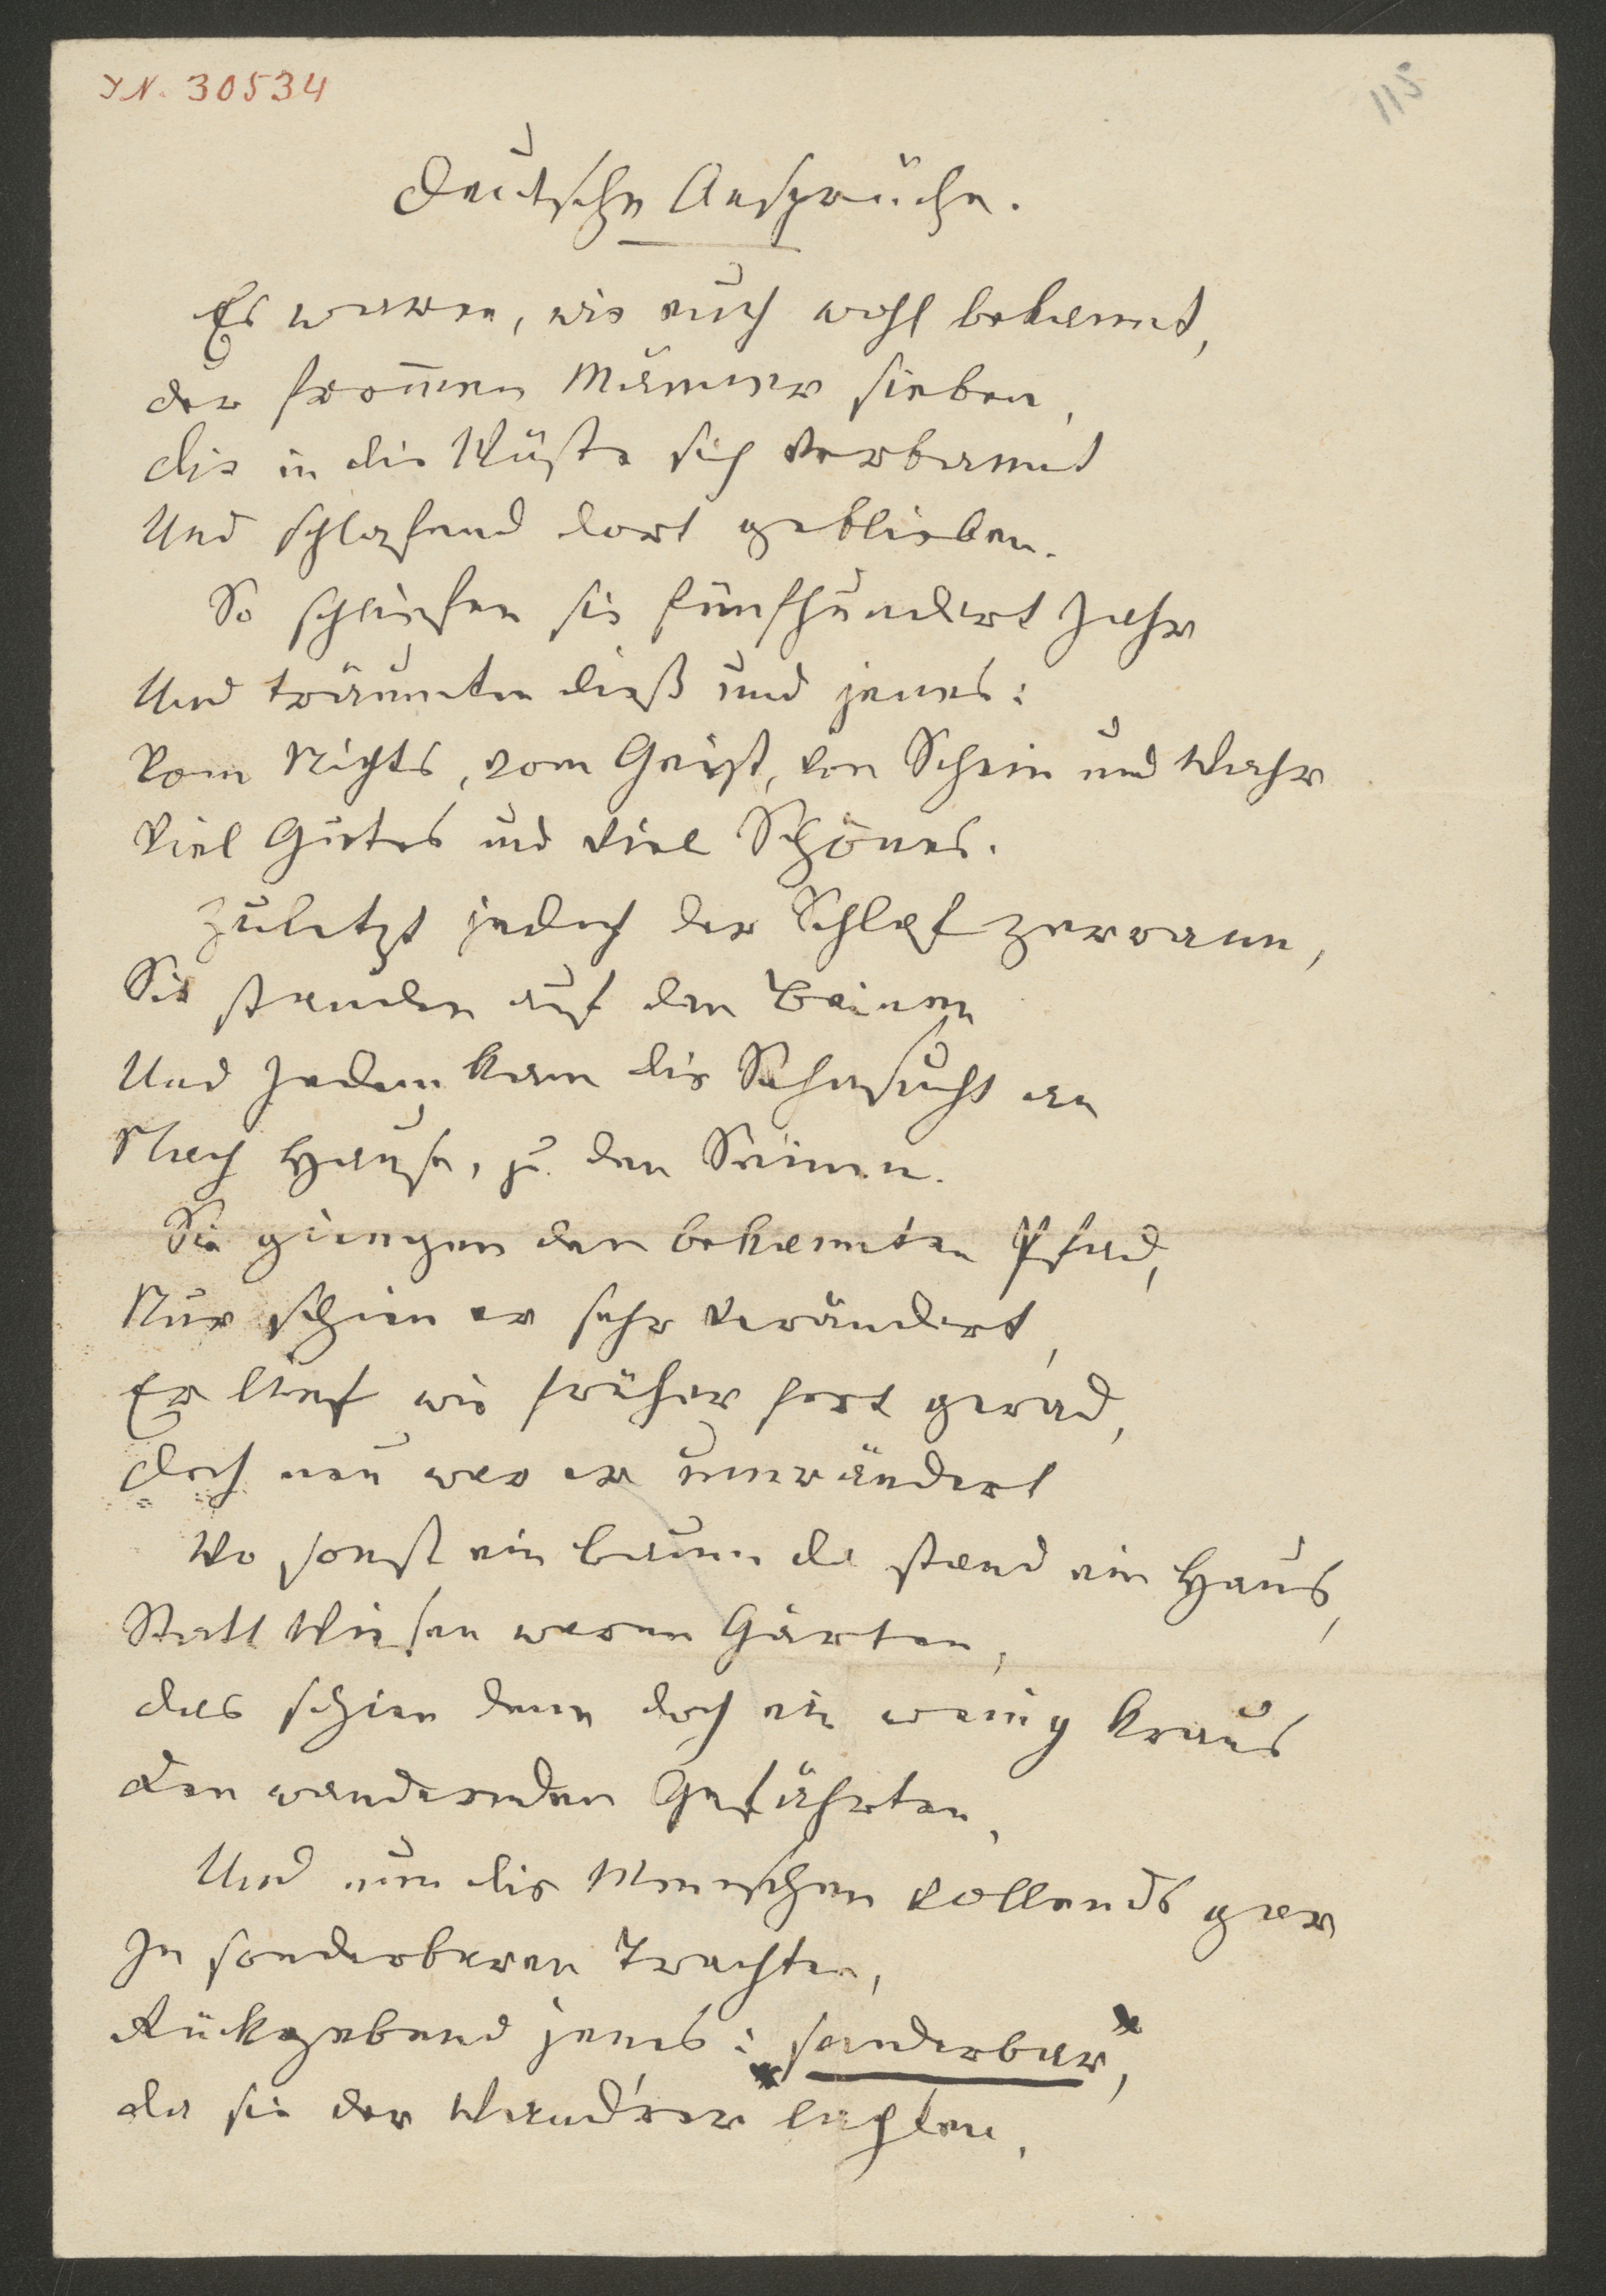 IN. 30534
115
Deutsche Ansprüche.
Es waren, wie euch wohl bekannt,
der from̅en Männer sieben,
die in die Wüste sich verbannt
Und schlafend dort geblieben.
So schliefen sie fünfhundert Jahr
Und träumten dieß und jenes:
Vom Nichts, vom Geist, von Schein und Wahr
Viel Gutes und viel Schönes.
Zuletzt jedoch der Schlaf zerrann,
Sie standen auf den Beinen
Und Jedem kam die Sehnsucht an
Nach Hause, zu den Seinen.
Sie giengen den bekannten Pfad,
Nur schien er sehr verändert,
Er lief wie früher fort gerad,
doch neu war er umrändert
Wo sonst ein Baum da stand ein Haus,
Statt Wiesen waren Gärten,
das schien denn doch ein wenig kraus
den wandernden Gefährten,
Und nun die Menschen vollends gar
In sonderbaren Trachten,
Rückgebend jenes: „sonderbar“,
da sie der Wandrer lachten,